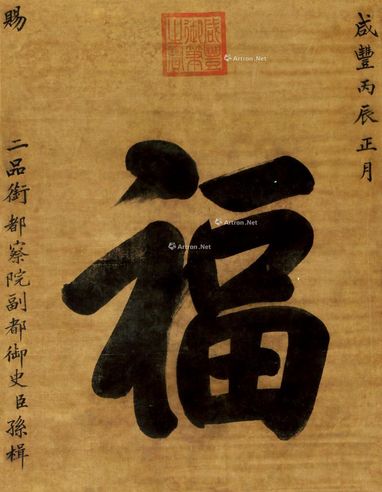 咸豐丙辰正月
咸豐
御筆
之寶
福
賜
二品銜都察院副都御史臣孫楫
Artron.Net
Artron.Net
Artron.Net